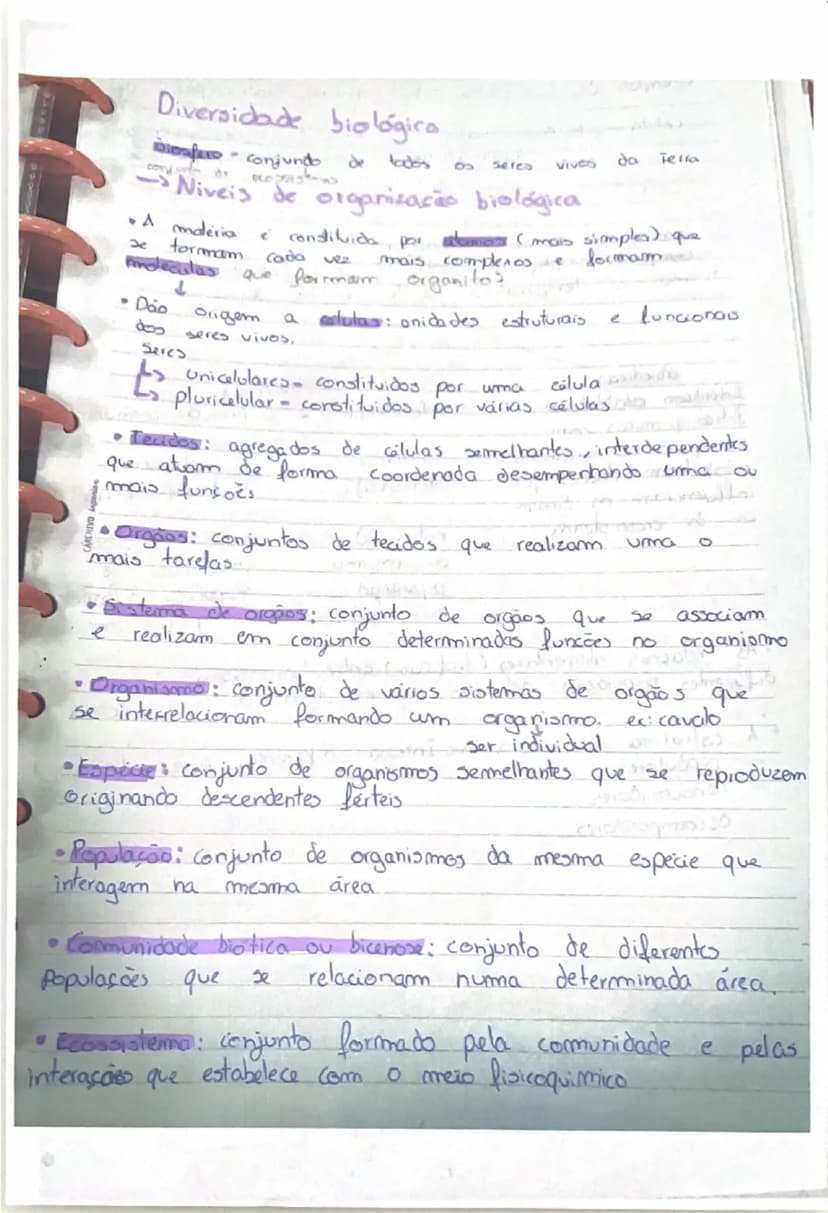 Diversidade biológica
Biosfera - conjundo de todos os seres vivos da Terra
conjunto de ecossistemas
→ Niveis de organização biológica
• A matéria é constituida por átomos (mais simples) que
se formam cada vez mais complexos e formam
moléculas que formam organito?
↓
• Dão origem a células: unidades estruturais e funcionais
dos seres vivos.
Seres
↳ Unicelulares - constituidos por uma célula
↳ pluricelular - constituidos por várias células
• Tecidos: agregados de células semelhantes, interdependentes
que atuam de forma coordenada desempenhando uma ou
mais funções
• Orgãos: conjuntos de tecidos que realizam uma o
mais tarefas
• Sistema de orgãos: conjunto de orgãos que se associam
e realizam em conjunto determinadas funções no organismo
• Organismo: conjunto de vários sistemas de orgãos que
se interrelacionam formando um organismo. ex: cavalo
ser individual
• Espécie: conjunto de organismos semelhantes que se reproduzem
originando descendentes férteis
• População: conjunto de organismos da mesma espécie que
interagem na mesma área
• Comunidade biotica ou bicenose: conjunto de diferentes
populações que se relacionam numa determinada área.
• Ecossistema: conjunto formado pela comunidade e pelas
interações que estabelece com o meio fisicoquimico